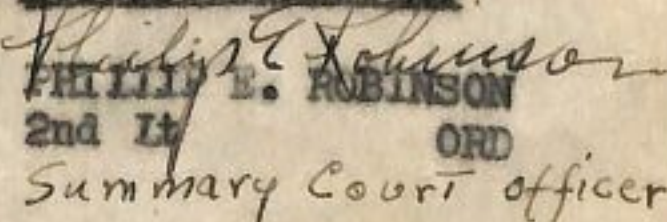 Philip E Robinson
PHILLIP E. ROBINSON
2nd Lt ORD
Summary Court officer